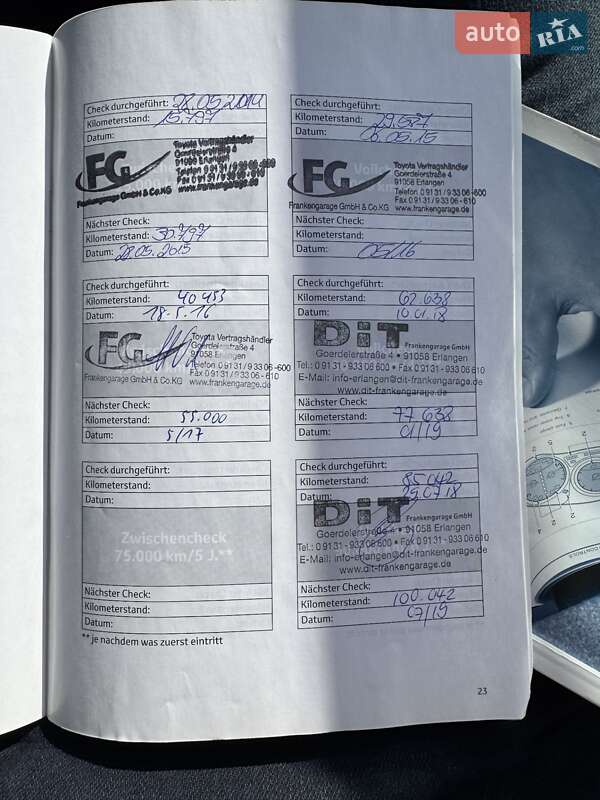 auto RIA .com
Check durchgeführt: 28.05.2014
Kilometerstand: 15.797
Datum:
FG
Toyota Vertragshändler
Goerdelerstraße 4
91058 Erlangen
Frankengarage GmbH & Co.KG
www.frankengarage.de
Nächster Check:
Kilometerstand: 30.797
Datum: 28.05.2015
Check durchgeführt:
Kilometerstand: 29.627
Datum: 06.05.15
FG
Toyota Vertragshändler
Goerdelerstraße 4
91058 Erlangen
Telefon 0 91 31 / 9 33 06 -600
Fax 0 91 31 / 9 33 06 - 610
Frankengarage GmbH & Co.KG www.frankengarage.de
Nächster Check:
Kilometerstand:
Datum: 05/16
Check durchgeführt:
Kilometerstand: 40 453
Datum: 18.5.16
FG
Toyota Vertragshändler
Goerdelerstraße 4
91058 Erlangen
Telefon 0 91 31 / 9 33 06 -600
Fax 0 91 31 / 9 33 06 - 610
Frankengarage GmbH & Co.KG www.frankengarage.de
Nächster Check:
Kilometerstand: 55.000
Datum: 5/17
Check durchgeführt:
Kilometerstand: 62.638
Datum: 10.01.18
DiT Frankengarage GmbH
Goerdelerstraße 4 • 91058 Erlangen
Tel.: 0 91 31 - 933 06 600 • Fax 0 91 31 - 933 06 610
E-Mail: info-erlangen@dit-frankengarage.de
www.dit-frankengarage.de
Nächster Check:
Kilometerstand: 77 638
Datum: 01/19
Check durchgeführt:
Kilometerstand:
Datum:
Zwischencheck
75.000 km/5 J.**
Nächster Check:
Kilometerstand:
Datum:
Check durchgeführt:
Kilometerstand: 85 042
Datum: 25.07.18
DiT Frankengarage GmbH
Goerdelerstraße 4 • 91058 Erlangen
Tel.: 0 91 31 - 933 06 600 • Fax 0 91 31 - 933 06 610
E-Mail: info-erlangen@dit-frankengarage.de
www.dit-frankengarage.de
Nächster Check:
Kilometerstand: 100.042
Datum: 07/19
** je nachdem was zuerst eintritt
23